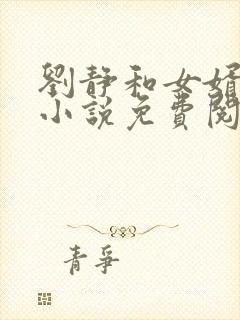 劉靜和女婿
小說免費閱
青爭